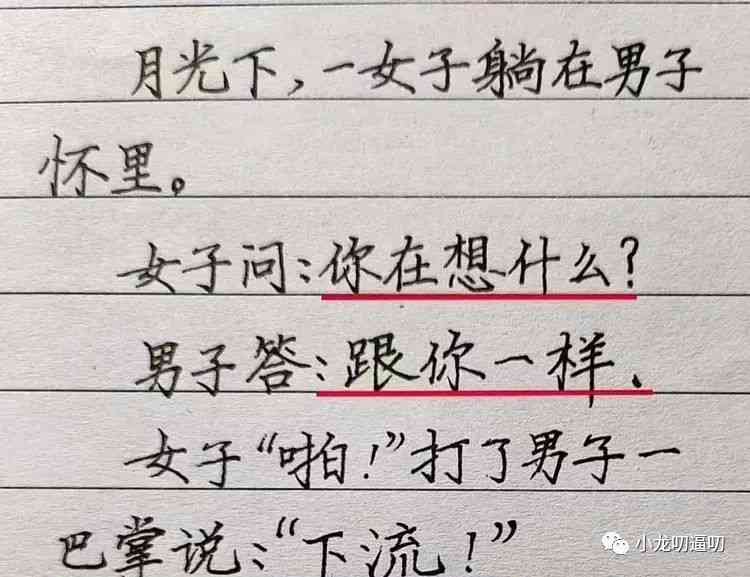 月光下,一女子躺在男子
怀里。
女子问:你在想什么?
男子答:跟你一样.
女子“啪!”打了男子一
巴掌说:“下流!”
小龙叨逼叨